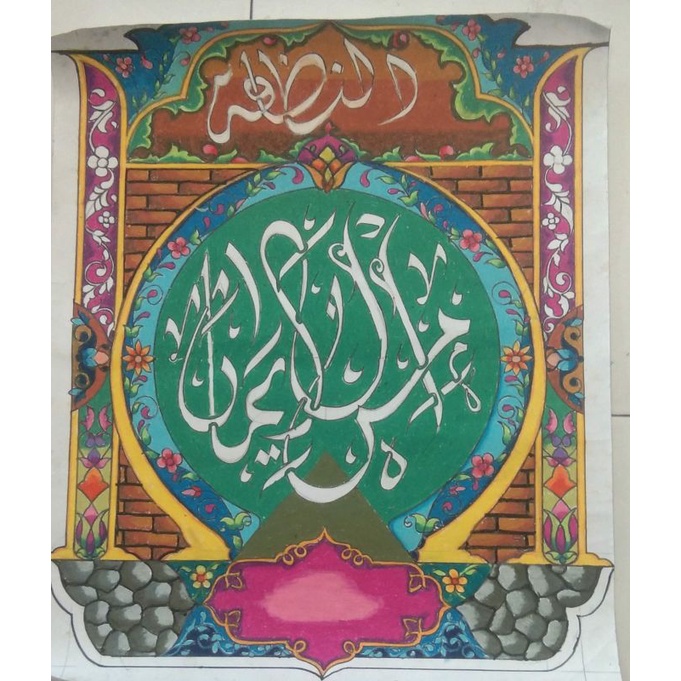 النظافة
من الإيمان